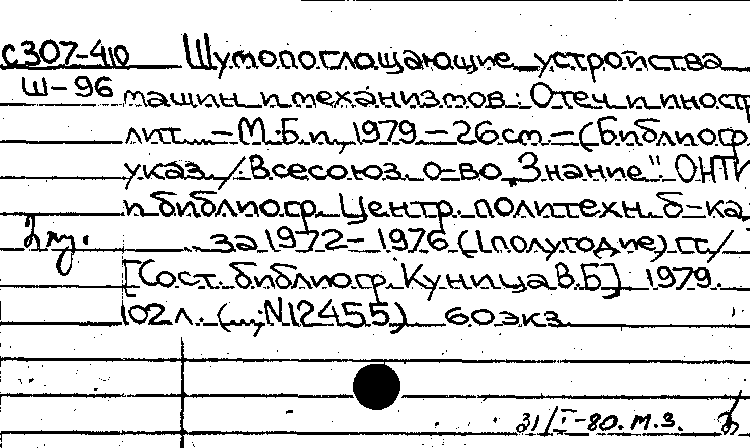 С307-410 Шумопоглощающие устройства
Ш-96 машин и механизмов: Отеч и иностр
лит. ... – М.: Б.и., 1979 – 26см – (Библиогр.
указ / Всесоюз. о-во „Знание" ОНТИ
и библиогр. Центр. политехн. б-ка;
за 1972 – 1976 (1 полугодие) гг /
[Сост. библиогр. Куница В.Б] 1979.
102 л. (...; N12455) 60 экз
31/I-80. м.з.